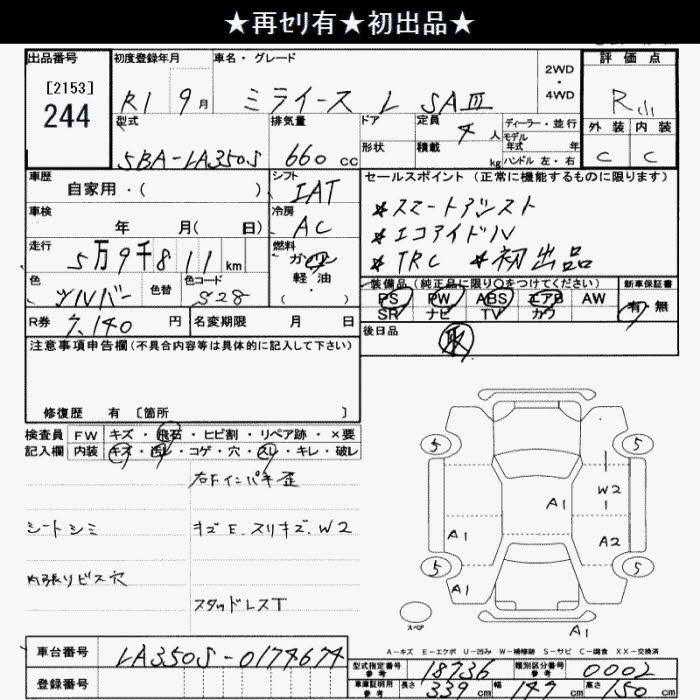 ★再セリ有★初出品★
出品番号
[2153]
244
初度登録年月
R1 9月
車名・グレード
ミライース L SAⅢ
2WD
・
4WD
評価点
R小
外装 内装
C C
型式
5BA-LA350S
排気量
660 cc
ドア
形状
定員 4 人
積載 kg
ディーラー・並行
モデル年式 年
ハンドル 左・右
車歴
自家用・( )
シフト
IAT
車検
年 月( 日)
冷房
AC
走行
5万9千811km
燃料
ガソリン
軽油
( ・ )
色
シルバー
色替
色コード
S28
R券
7,140 円
名変期限 月 日
セールスポイント(正常に機能するものに限ります)
*スマートアシスト
*エコアイドル
*TRC *初出品
装備品(純正品に限り○をつけてください)
PS PW ABS エアB AW
SR ナビ TV カワ
新車保証書
有・無
後日品
取
注意事項申告欄(不具合内容等は具体的に記入して下さい)
修復歴 有 〔箇所 〕
検査員 FW キズ・飛石・ヒビ割・リペア跡・×要
記入欄 内装 キズ・汚レ・コゲ・穴・スレ・キレ・破レ
右Fインパネ歪
シートシミ
キズE.スリキズ.W2
内張りビス穴
スタッドレスT
5 5
W2
A1
A1
A2
5 5
A1
スペア
A1
A-キズ E-エクボ U-凹み W-補修跡 S-サビ C-腐食 XX-交換済
車台番号
LA350S-0174674
登録番号
型式指定番号
参考
18736
類別区分番号
参考
0002
車庫証明用
参考
長さ 339 cm
幅 147 cm
高さ 150 cm